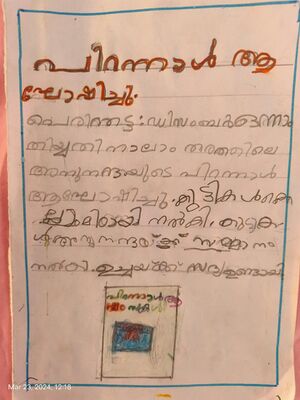 പിറന്നാൾ ആ
ഘോഷിച്ചു.
പെരിന്തട്ട: ഡിസംബർ ഒന്നാം
തിയ്യതി നാലാം തരത്തിലെ
അനുനന്ദയുടെ പിറന്നാൾ
ആഘോഷിച്ചു. കുട്ടികൾക്കെ
ല്ലാം മിഠായി നൽകി. കുട്ടികൾ
അനുനന്ദയ്ക്ക് സമ്മാനം
നൽകി. ഉച്ചയ്ക്ക് സദ്യ ഉണ്ടായി
പിറന്നാൾ ആ
Mar 23, 2024, 12:18